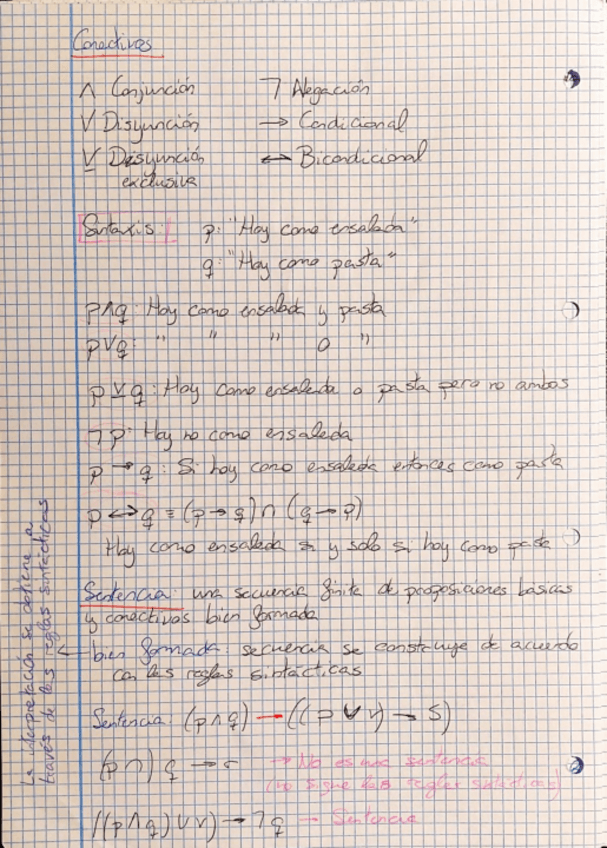 Conectivas
∧ Conjunción ¬ Negación
∨ Disyunción → Condicional
⊻ Disyunción exclusiva ↔ Bicondicional
Sintaxis: p: "Hoy como ensalada"
q: "Hoy como pasta"
p∧q: Hoy como ensalada y pasta
p∨q: " " " o "
p⊻q: Hoy como ensalada o pasta pero no ambos
¬p: Hoy no como ensalada
p → q: Si hoy como ensalada entonces como pasta
p ↔ q ≡ (p → q) ∩ (q → p)
Hoy como ensalada si y solo si hoy como pasta
Sentencia: una secuencia finita de proposiciones básicas
y conectivos bien formada
bien formada: secuencia se construye de acuerdo
con las reglas sintácticas
La interpretación se obtiene a
través de las reglas sintácticas
Sentencia: (p∧q) → ((p∨r) → s)
(p ∩) q → r → No es una sentencia
(no sigue las reglas sintácticas)
((p∧q) ∪ r) → ¬q → Sentencia